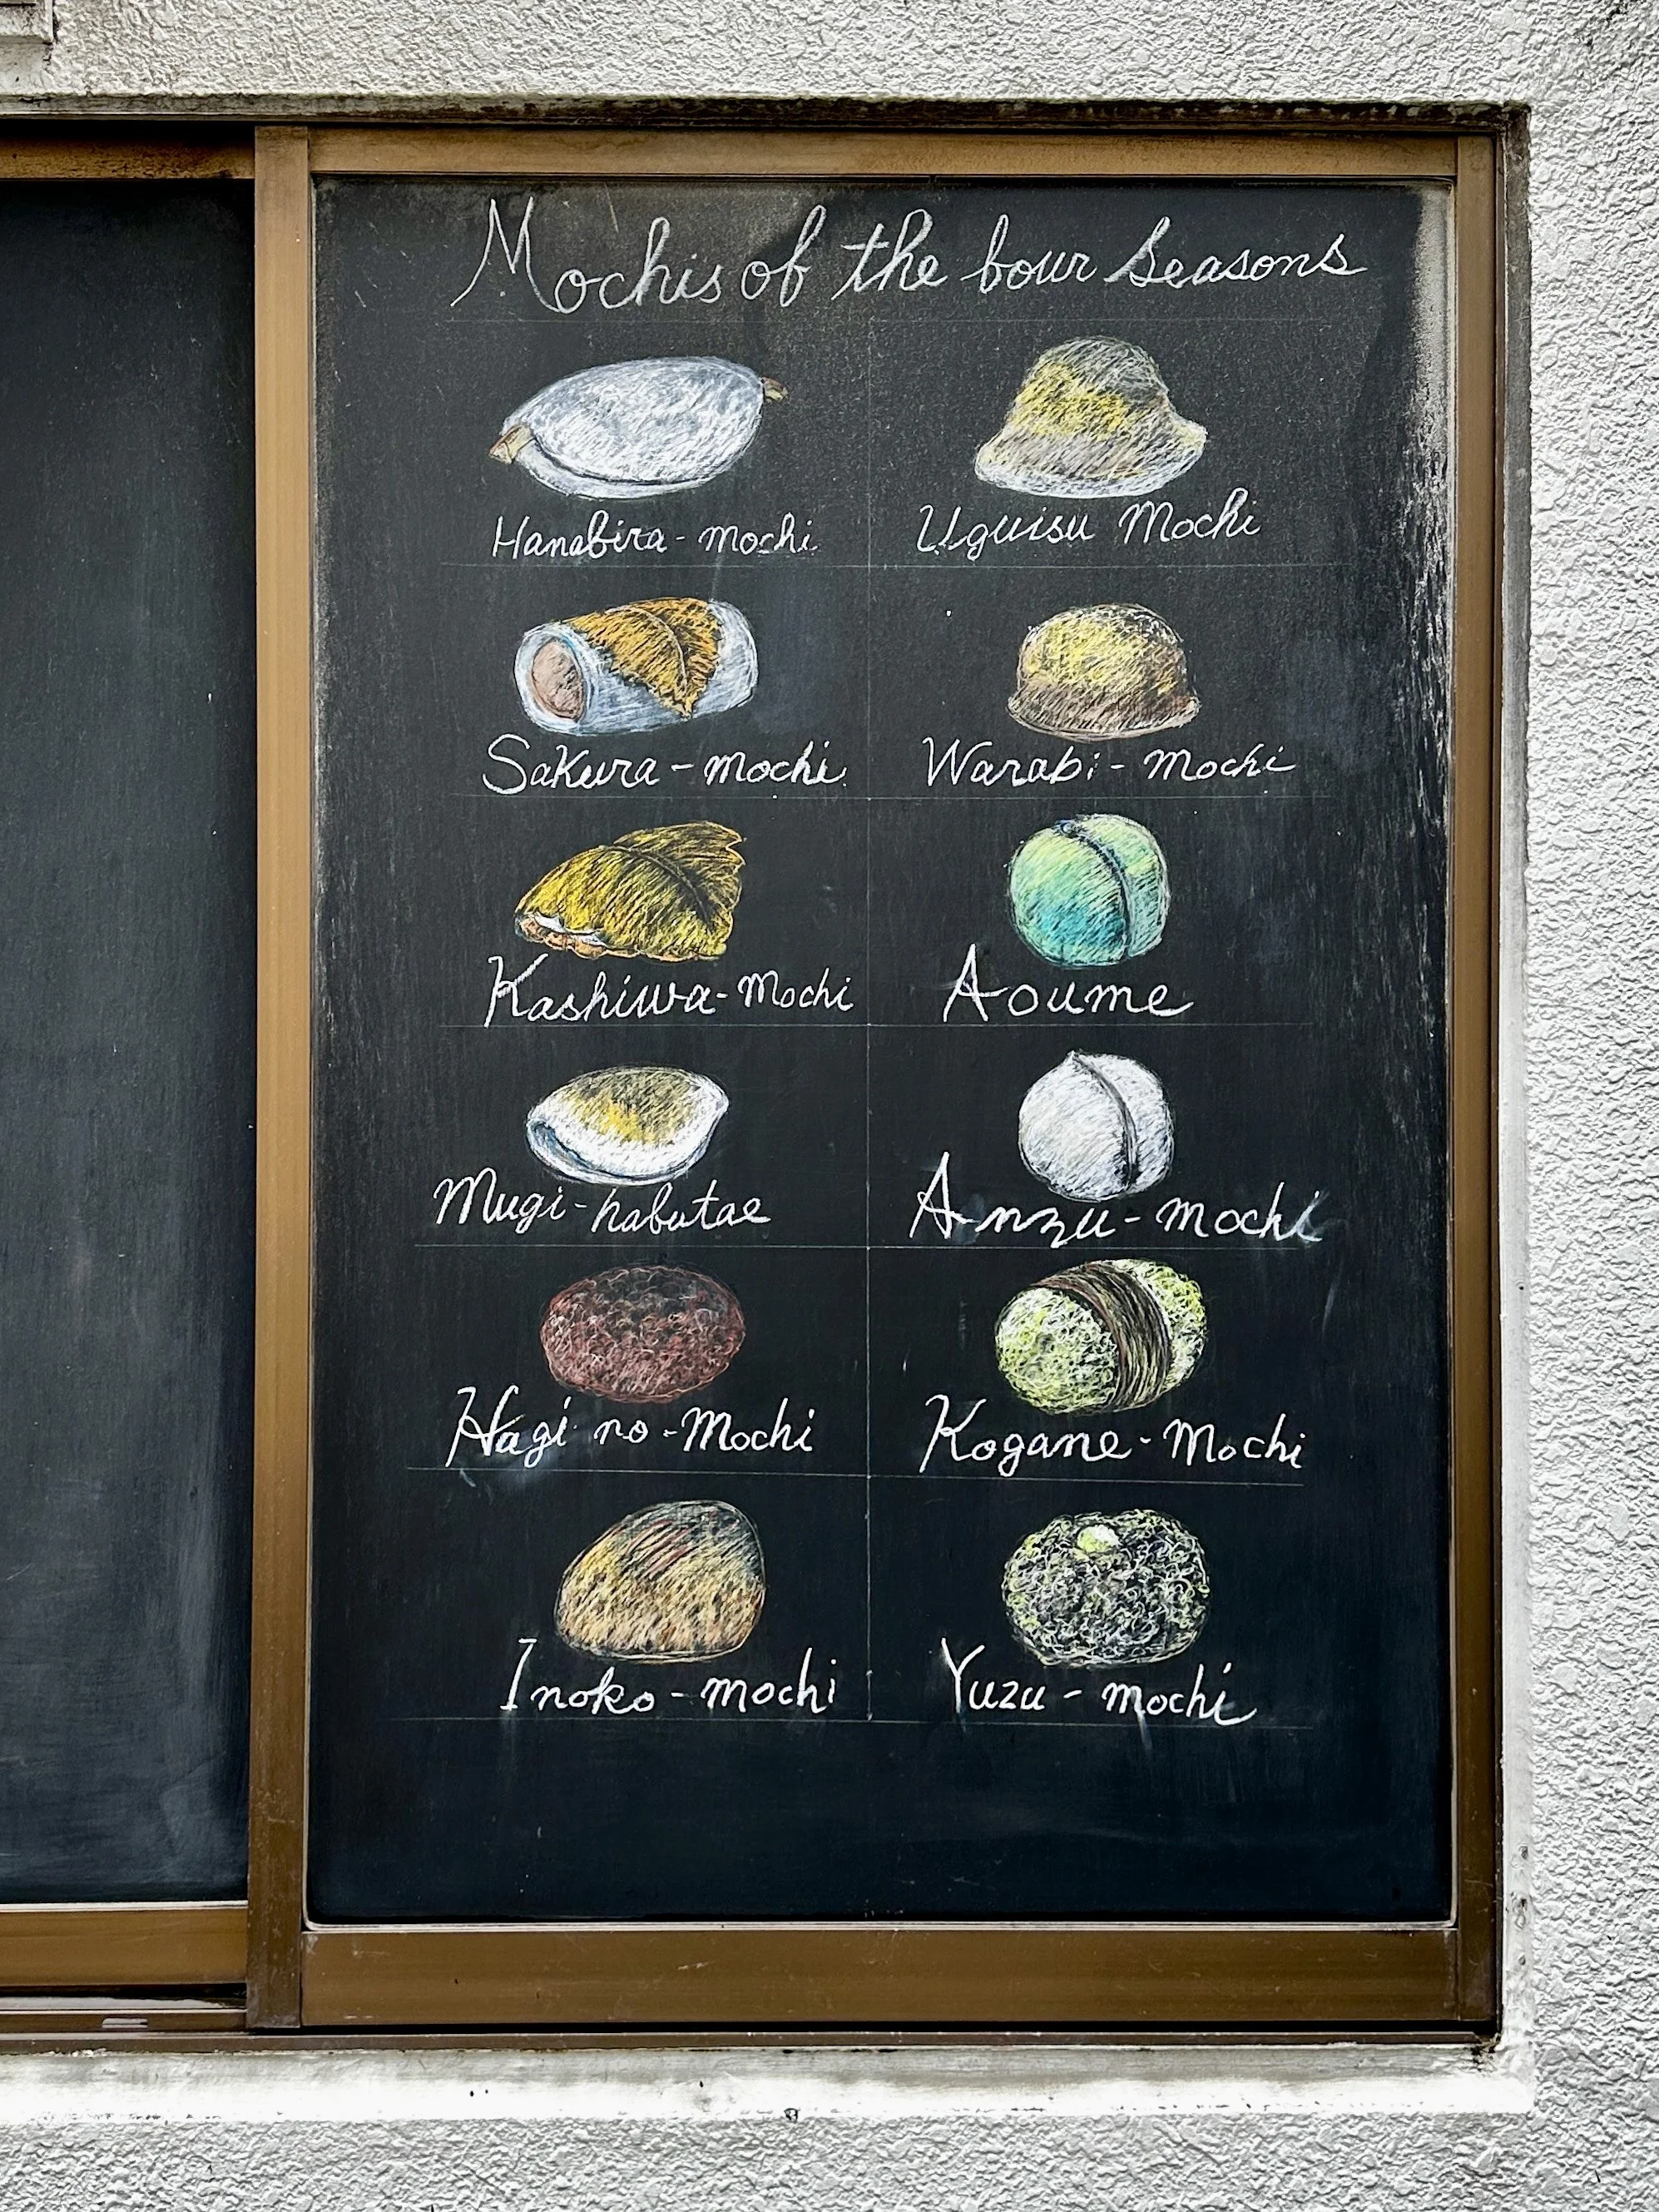 Mochis of the bour Seasons
Hanabira-mochi
Uguisu Mochi
Sakura-mochi
Warabi-mochi
Kashiwa-Mochi
Aoume
Mugi-habutae
Anzu-mochi
Hagi no-Mochi
Kogane-Mochi
Inoko-mochi
Yuzu-mochi